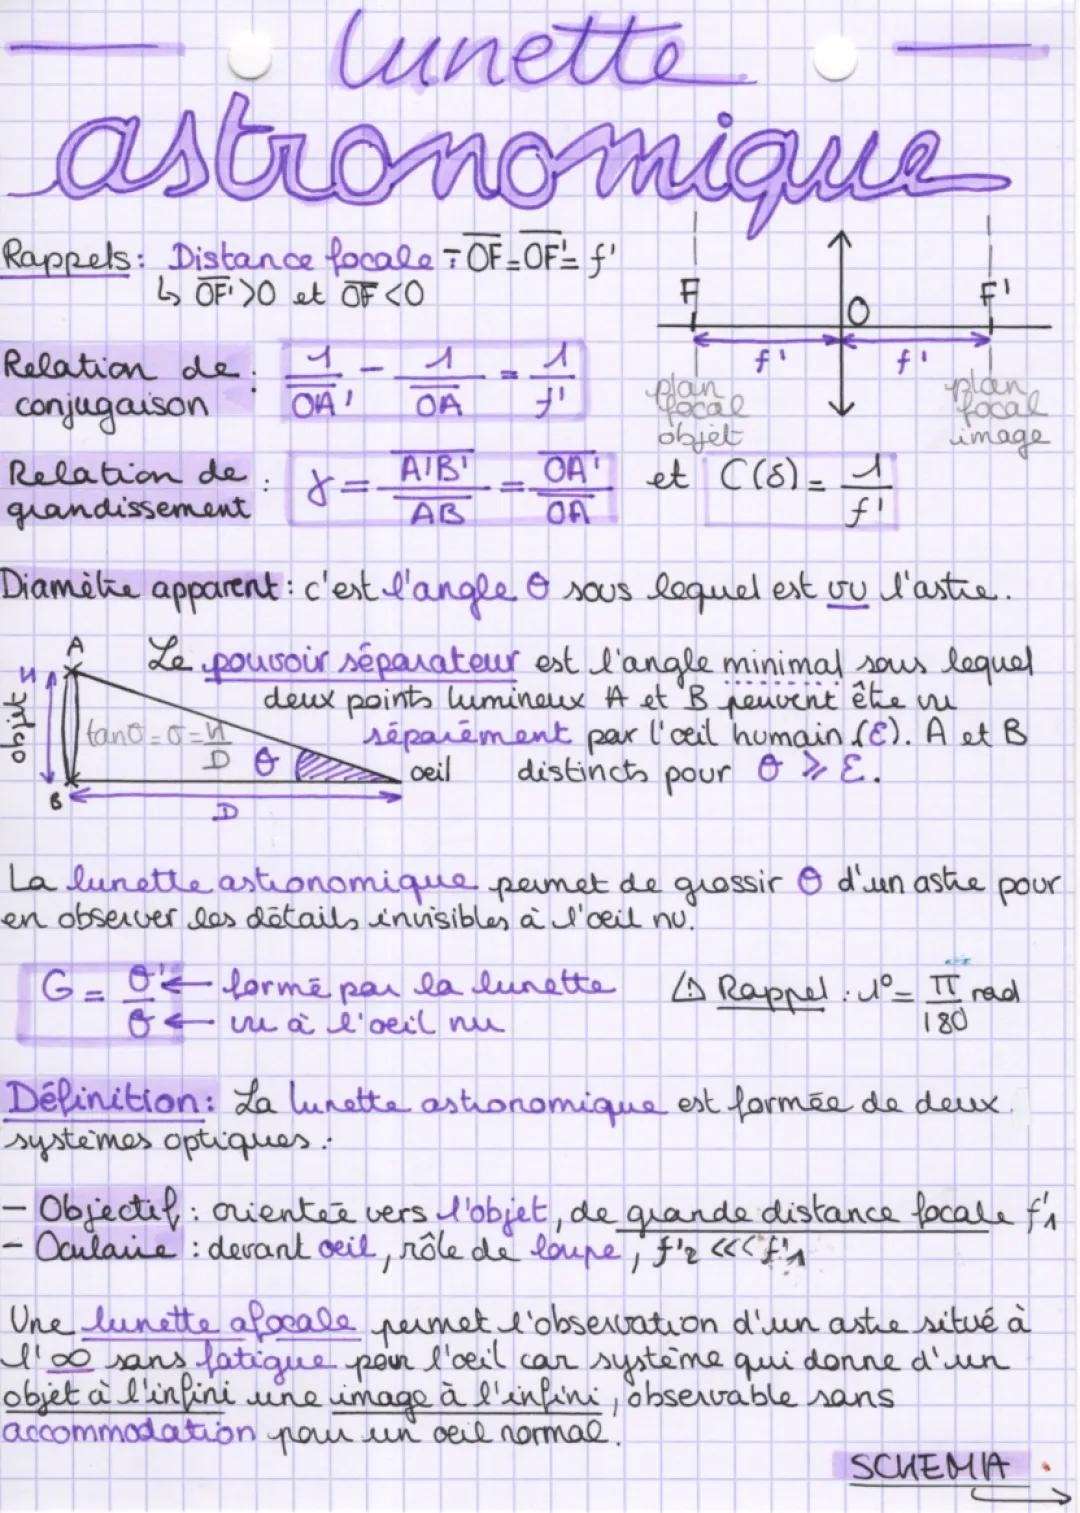 lunette
astronomique
Rappels: Distance focale : OF=OF'= f'
↳ OF'>0 et OF<0
F O F'
f' f'
plan focal objet
plan focal image
Relation de conjugaison : 1/OA' - 1/OA = 1/f'
Relation de grandissement : γ = A'B'/AB = OA'/OA et C(δ) = 1/f'
Diamètre apparent: c'est l'angle θ sous lequel est vu l'astre.
A
objet
B
tanθ = θ = H/D
θ
oeil
D
Le pouvoir séparateur est l'angle minimal sous lequel
deux points lumineux A et B peuvent être vu
séparément par l'œil humain (ε). A et B
distincts pour θ ⩾ ε.
La lunette astronomique permet de grossir θ d'un astre pour
en observer les détails invisibles à l'œil nu.
G = θ'/θ
θ' ← formé par la lunette
θ ← vu à l'oeil nu
⚠ Rappel : 1° = π/180 rad
Définition: La lunette astronomique est formée de deux
systèmes optiques :
- Objectif : orientée vers l'objet, de grande distance focale f'1
- Oculaire : devant oeil, rôle de loupe, f'2 <<< f'1
Une lunette afocale permet l'observation d'un astre situé à
l'∞ sans fatigue pour l'œil car système qui donne d'un
objet à l'infini une image à l'infini, observable sans
accommodation pour un oeil normal.
SCHEMA →